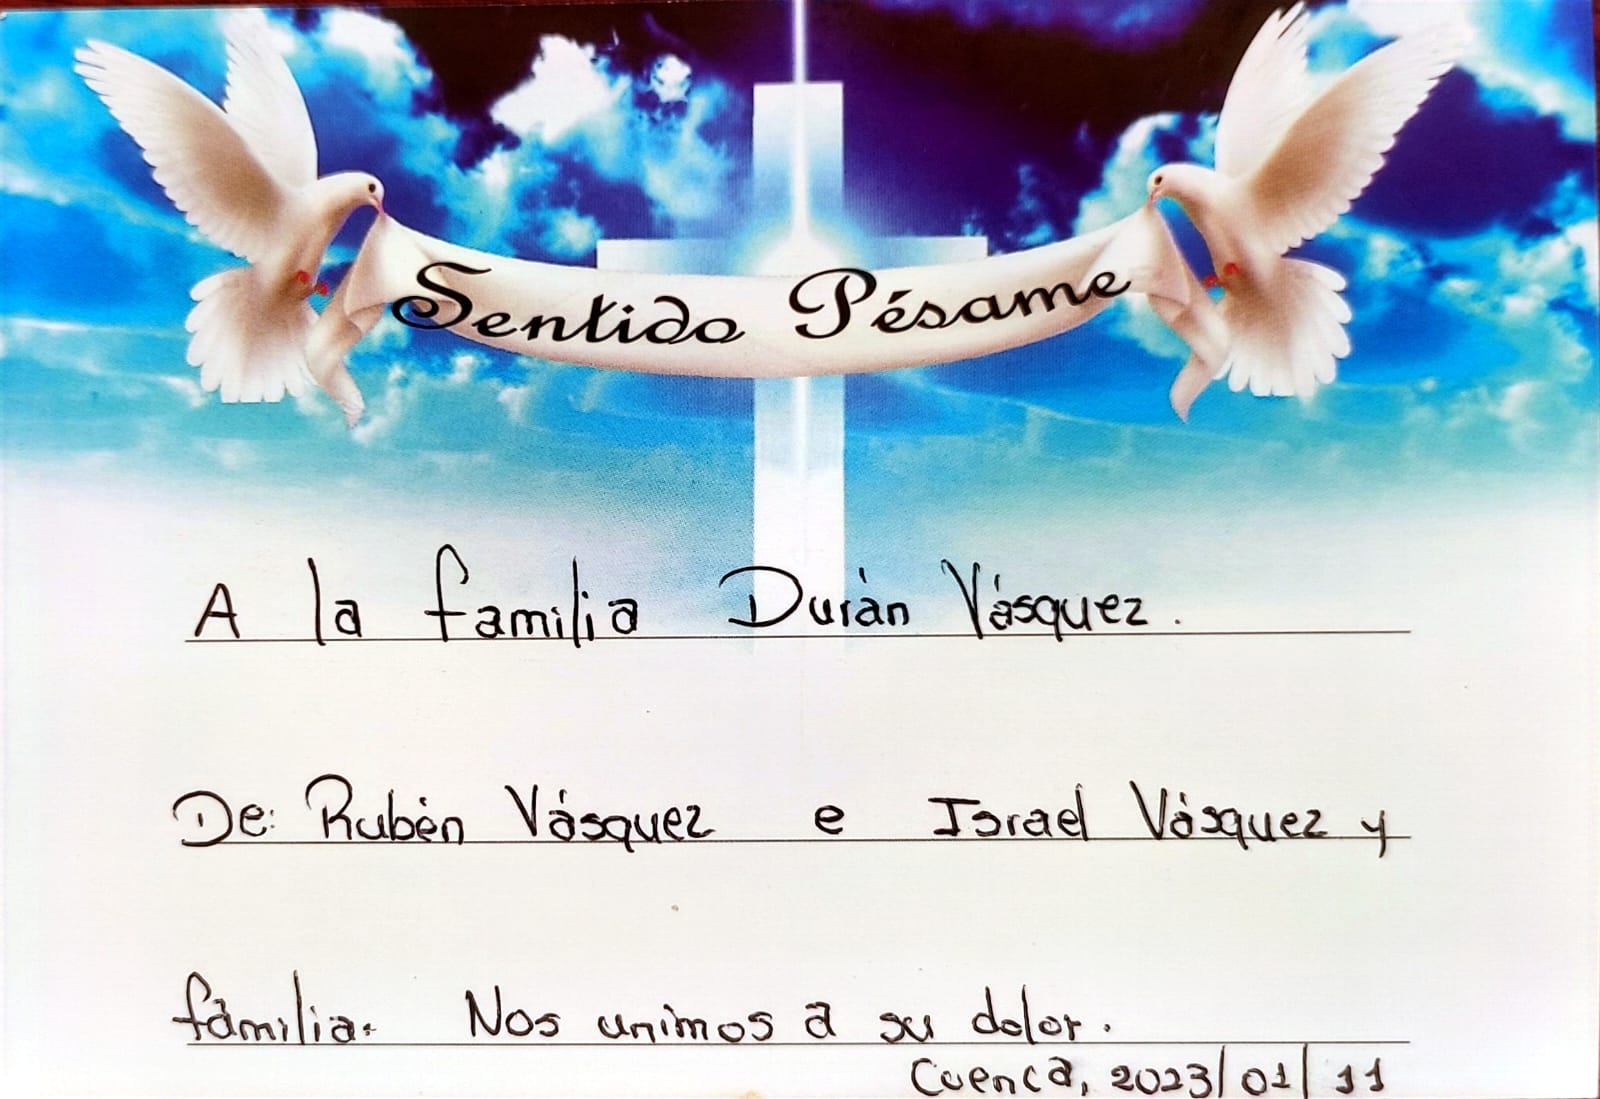 Sentido Pésame
A la familia Durán Vásquez.
De: Rubén Vásquez e Israel Vásquez y
familia. Nos unimos a su dolor.
Cuenca, 2023/01/11